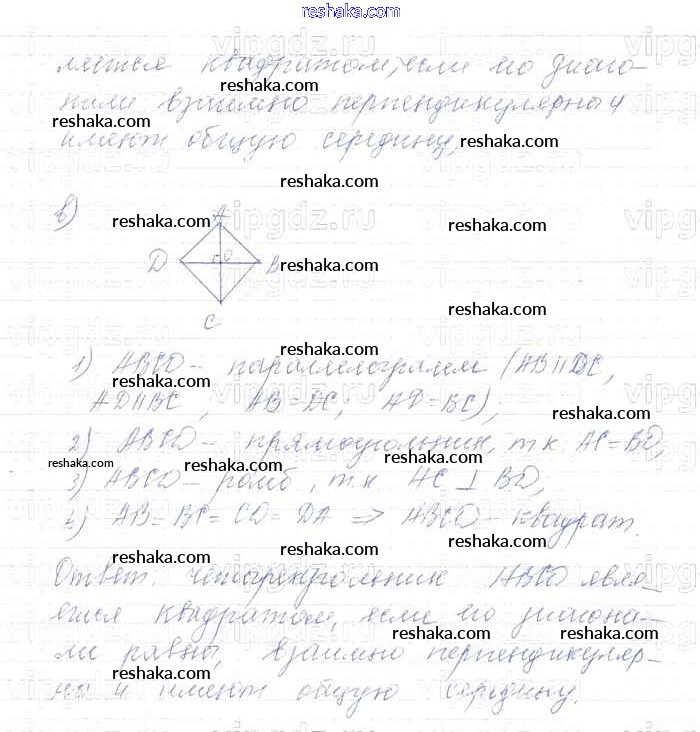 reshaka.com
ляется квадратом, если его диаго-
нали взаимно перпендикулярны и
имеют общую середину.
в)
A
D O B
C
1) ABCD – параллелограмм (AB || DC,
AD || BC ; AB = DC; AD = BC);
2) ABCD – прямоугольник, т.к. AC = BD,
3) ABCD – ромб, т.к. AC ⊥ BD;
4) AB = BC = CD = DA => ABCD – квадрат.
Ответ. четырехугольник ABCD явля-
ется квадратом, если его диагона-
ли равны, взаимно перпендикуляр-
ны и имеют общую середину.